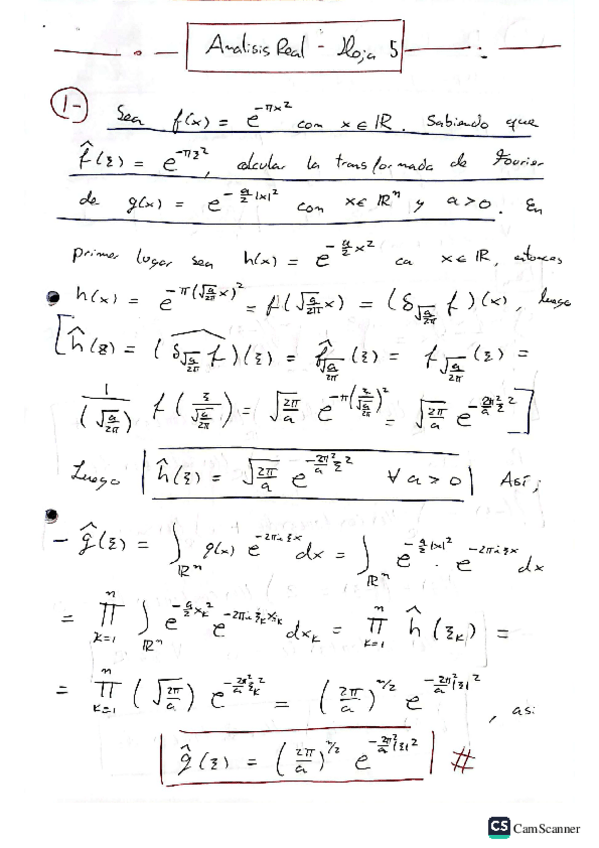 Analisis Real - Hoja 5
1- Sea f(x) = e^{-πx²} con x ∈ ℝ. Sabiendo que
f̂(ξ) = e^{-πξ²}, calcular la transformada de Fourier
de g(x) = e^{-a/2|x|²} con x ∈ ℝⁿ y a > 0. En
primer lugar sea h(x) = e^{-a/2 x²} con x ∈ ℝ, entonces
h(x) = e^{-π(√(a/2π) x)²} = f(√(a/2π) x) = (δ_{√(a/2π)} f)(x), luego
[ĥ(ξ) = (δ_{√(a/2π)} f)^(ξ) = f̂_{√(a/2π)}(ξ) = f_{√(a/2π)}(ξ) =
1/(√(a/2π)) f(ξ/√(a/2π)) = √(2π/a) e^{-π(ξ/√(a/2π))²} = √(2π/a) e^{-2π²/a ξ²}]
Luego ĥ(ξ) = √(2π/a) e^{-2π²/a ξ²} ∀ a > 0 Así;
- ĝ(ξ) = ∫_{ℝⁿ} g(x) e^{-2πiξx} dx = ∫_{ℝⁿ} e^{-a/2|x|²} · e^{-2πiξx} dx
= ∏_{k=1}^{n} ∫_{ℝⁿ} e^{-a/2 x_k²} e^{-2πiξ_k x_k} dx_k = ∏_{k=1}^{n} ĥ(ξ_k) =
= ∏_{k=1}^{n} (√(2π/a)) e^{-2π²/a ξ_k²} = (2π/a)^{n/2} e^{-2π²/a |ξ|²}, asi
ĝ(ξ) = (2π/a)^{n/2} e^{-2π²/a |ξ|²} #
CS CamScanner